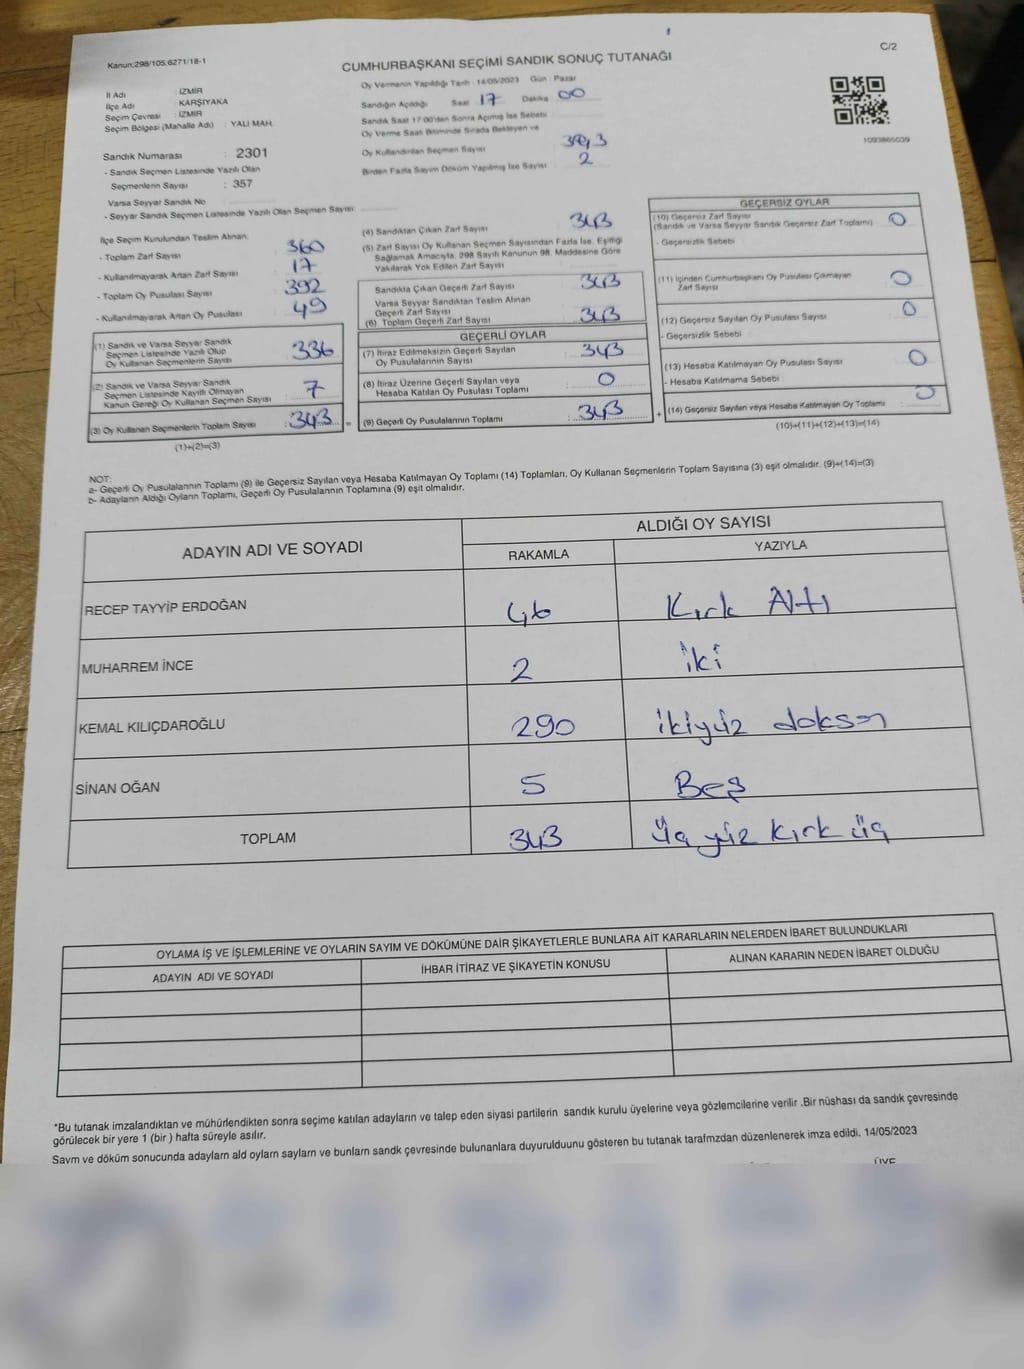 C/2
Kanun:298/105:6271/18-1
CUMHURBAŞKANI SEÇİMİ SANDIK SONUÇ TUTANAĞI
İl Adı : İZMİR
İlçe Adı : KARŞIYAKA
Seçim Çevresi : İZMİR
Seçim Bölgesi (Mahalle Adı) : YALI MAH.
Sandık Numarası : 2301
- Sandık Seçmen Listesinde Yazılı Olan
Seçmenlerin Sayısı : 357
Varsa Seyyar Sandık No
- Seyyar Sandık Seçmen Listesinde Yazılı Olan Seçmen Sayısı
Oy Vermenin Yapıldığı Tarih : 14/05/2023 Gün : Pazar
Sandığın Açıldığı Saat 17 Dakika 00
Sandık Saat 17:00'den Sonra Açılmış İse Sebebi
Oy Verme Saati Bitiminde Sırada Bekleyen ve
Oy Kullandırılan Seçmen Sayısı
Birden Fazla Sayım Döküm Yapılmış İse Sayısı 2
1093865039
İlçe Seçim Kurulundan Teslim Alınan:
- Toplam Zarf Sayısı 360
- Kullanılmayarak Artan Zarf Sayısı 17
- Toplam Oy Pusulası Sayısı 392
- Kullanılmayarak Artan Oy Pusulası 49
(1) Sandık ve Varsa Seyyar Sandık
Seçmen Listesinde Yazılı Olup
Oy Kullanan Seçmenlerin Sayısı 336
(2) Sandık ve Varsa Seyyar Sandık
Seçmen Listesinde Kayıtlı Olmayan
Kanun Gereği Oy Kullanan Seçmen Sayısı 7
(3) Oy Kullanan Seçmenlerin Toplam Sayısı : 343 =
(1)+(2)=(3)
(4) Sandıktan Çıkan Zarf Sayısı 343
(5) Zarf Sayısı Oy Kullanan Seçmen Sayısından Fazla İse, Eşitliği
Sağlamak Amacıyla, 298 Sayılı Kanunun 98. Maddesine Göre
Yakılarak Yok Edilen Zarf Sayısı
Sandıkta Çıkan Geçerli Zarf Sayısı 343
Varsa Seyyar Sandıktan Teslim Alınan
Geçerli Zarf Sayısı
(6) Toplam Geçerli Zarf Sayısı 343
GEÇERLİ OYLAR
(7) İtiraz Edilmeksizin Geçerli Sayılan
Oy Pusulalarının Sayısı 343
(8) İtiraz Üzerine Geçerli Sayılan veya
Hesaba Katılan Oy Pusulası Toplamı 0
(9) Geçerli Oy Pusulalarının Toplamı : 343 +
GEÇERSİZ OYLAR
(10) Geçersiz Zarf Sayısı 0
(Sandık ve Varsa Seyyar Sandık Geçersiz Zarf Toplamı)
- Geçersizlik Sebebi
(11) İçinden Cumhurbaşkanı Oy Pusulası Çıkmayan
Zarf Sayısı 0
(12) Geçersiz Sayılan Oy Pusulası Sayısı 0
- Geçersizlik Sebebi
(13) Hesaba Katılmayan Oy Pusulası Sayısı 0
- Hesaba Katılmama Sebebi
(14) Geçersiz Sayılan veya Hesaba Katılmayan Oy Toplamı 0
(10)+(11)+(12)+(13)=(14)
NOT:
a- Geçerli Oy Pusulalarının Toplamı (9) ile Geçersiz Sayılan veya Hesaba Katılmayan Oy Toplamı (14) Toplamları, Oy Kullanan Seçmenlerin Toplam Sayısına (3) eşit olmalıdır. (9)+(14)=(3)
b- Adayların Aldığı Oyların Toplamı, Geçerli Oy Pusulalarının Toplamına (9) eşit olmalıdır.
ADAYIN ADI VE SOYADI
ALDIĞI OY SAYISI
RAKAMLA YAZIYLA
RECEP TAYYİP ERDOĞAN 46 Kırk Altı
MUHARREM İNCE 2 iki
KEMAL KILIÇDAROĞLU 290 ikiyüz doksan
SİNAN OĞAN 5 Beş
TOPLAM 343 üç yüz kırk üç
OYLAMA İŞ VE İŞLEMLERİNE VE OYLARIN SAYIM VE DÖKÜMÜNE DAİR ŞİKAYETLERLE BUNLARA AİT KARARLARIN NELERDEN İBARET BULUNDUKLARI
ADAYIN ADI VE SOYADI İHBAR İTİRAZ VE ŞİKAYETİN KONUSU ALINAN KARARIN NEDEN İBARET OLDUĞU
*Bu tutanak imzalandıktan ve mühürlendikten sonra seçime katılan adayların ve talep eden siyasi partilerin sandık kurulu üyelerine veya gözlemcilerine verilir .Bir nüshası da sandık çevresinde
görülecek bir yere 1 (bir ) hafta süreyle asılır.
Sayım ve döküm sonucunda adayların ald oyların sayların ve bunların sandk çevresinde bulunanlara duyurulduunu gösteren bu tutanak tarafmzdan düzenlenerek imza edildi. 14/05/2023
ÜYE